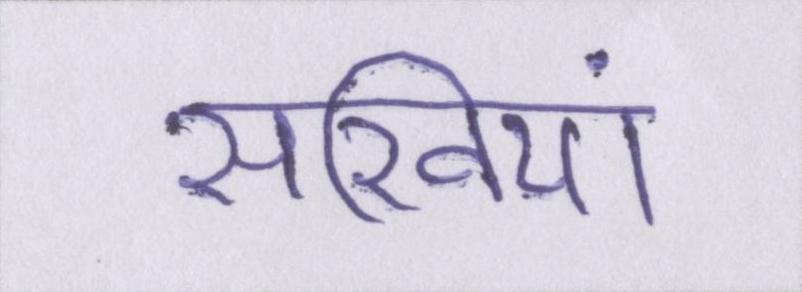 सखियां